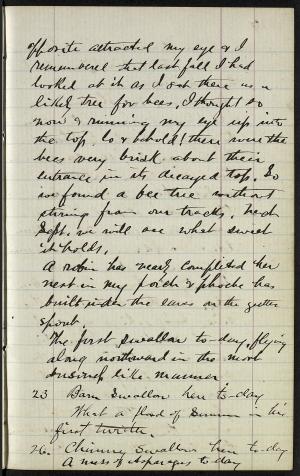 opposite attracted my eye & I
remembered that last fall I had
looked at it as I sat there as a
likely tree for bees, I thought so
now & running my eye up into
the top, lo & behold! there were the
bees very brisk about their
entrance in its decayed top. So
we found a bee tree without
stiring from our tracks. Next
Sept. we will see what sweet
it holds.
A robin has nearly completed her
nest in my porch & phoebe has
built under the eaves on the gutter
spout.
The first swallow to-day, flying
along northward in the most
dreamy like manner
23 Barn Swallow here to-day
What a flood of summer in his
first twitter.
26. Chimney Swallows here to-day
A mess of asparagus to day